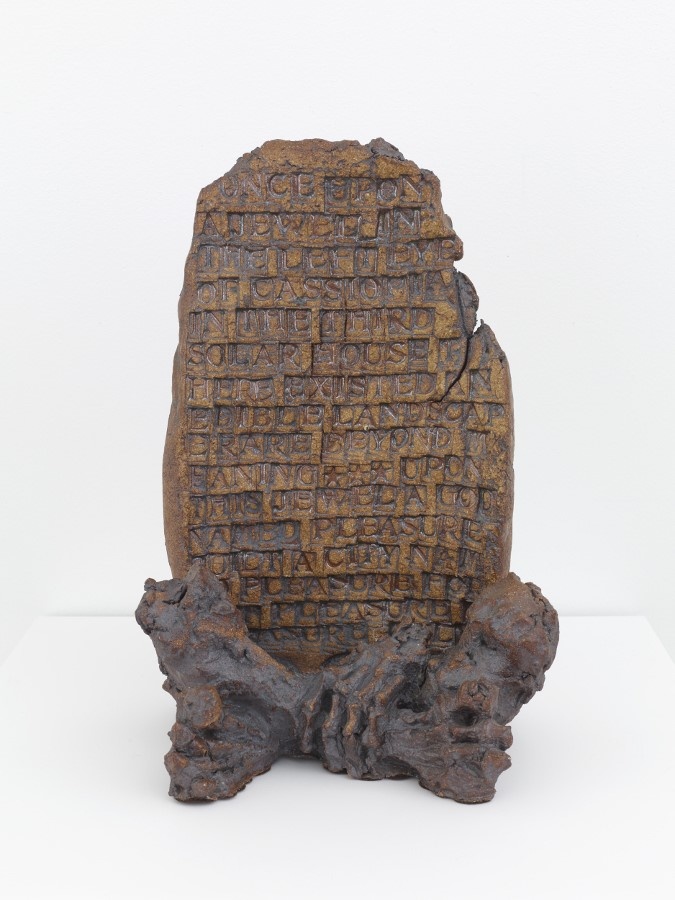 ONCE UPON
A JEWEL IN
THE LEFT EYE
OF CASSIO
IN THE THIRD
SOLAR HOUSE
HER EXISTED AN
EDIBLE LANDSCAP
E RARE BEYOND M
EANING *** UPON
THIS JEWEL A GOD
NAMED PLEASURE
BUILT A CITY NAM
ED PLEASURE
PLEASURE